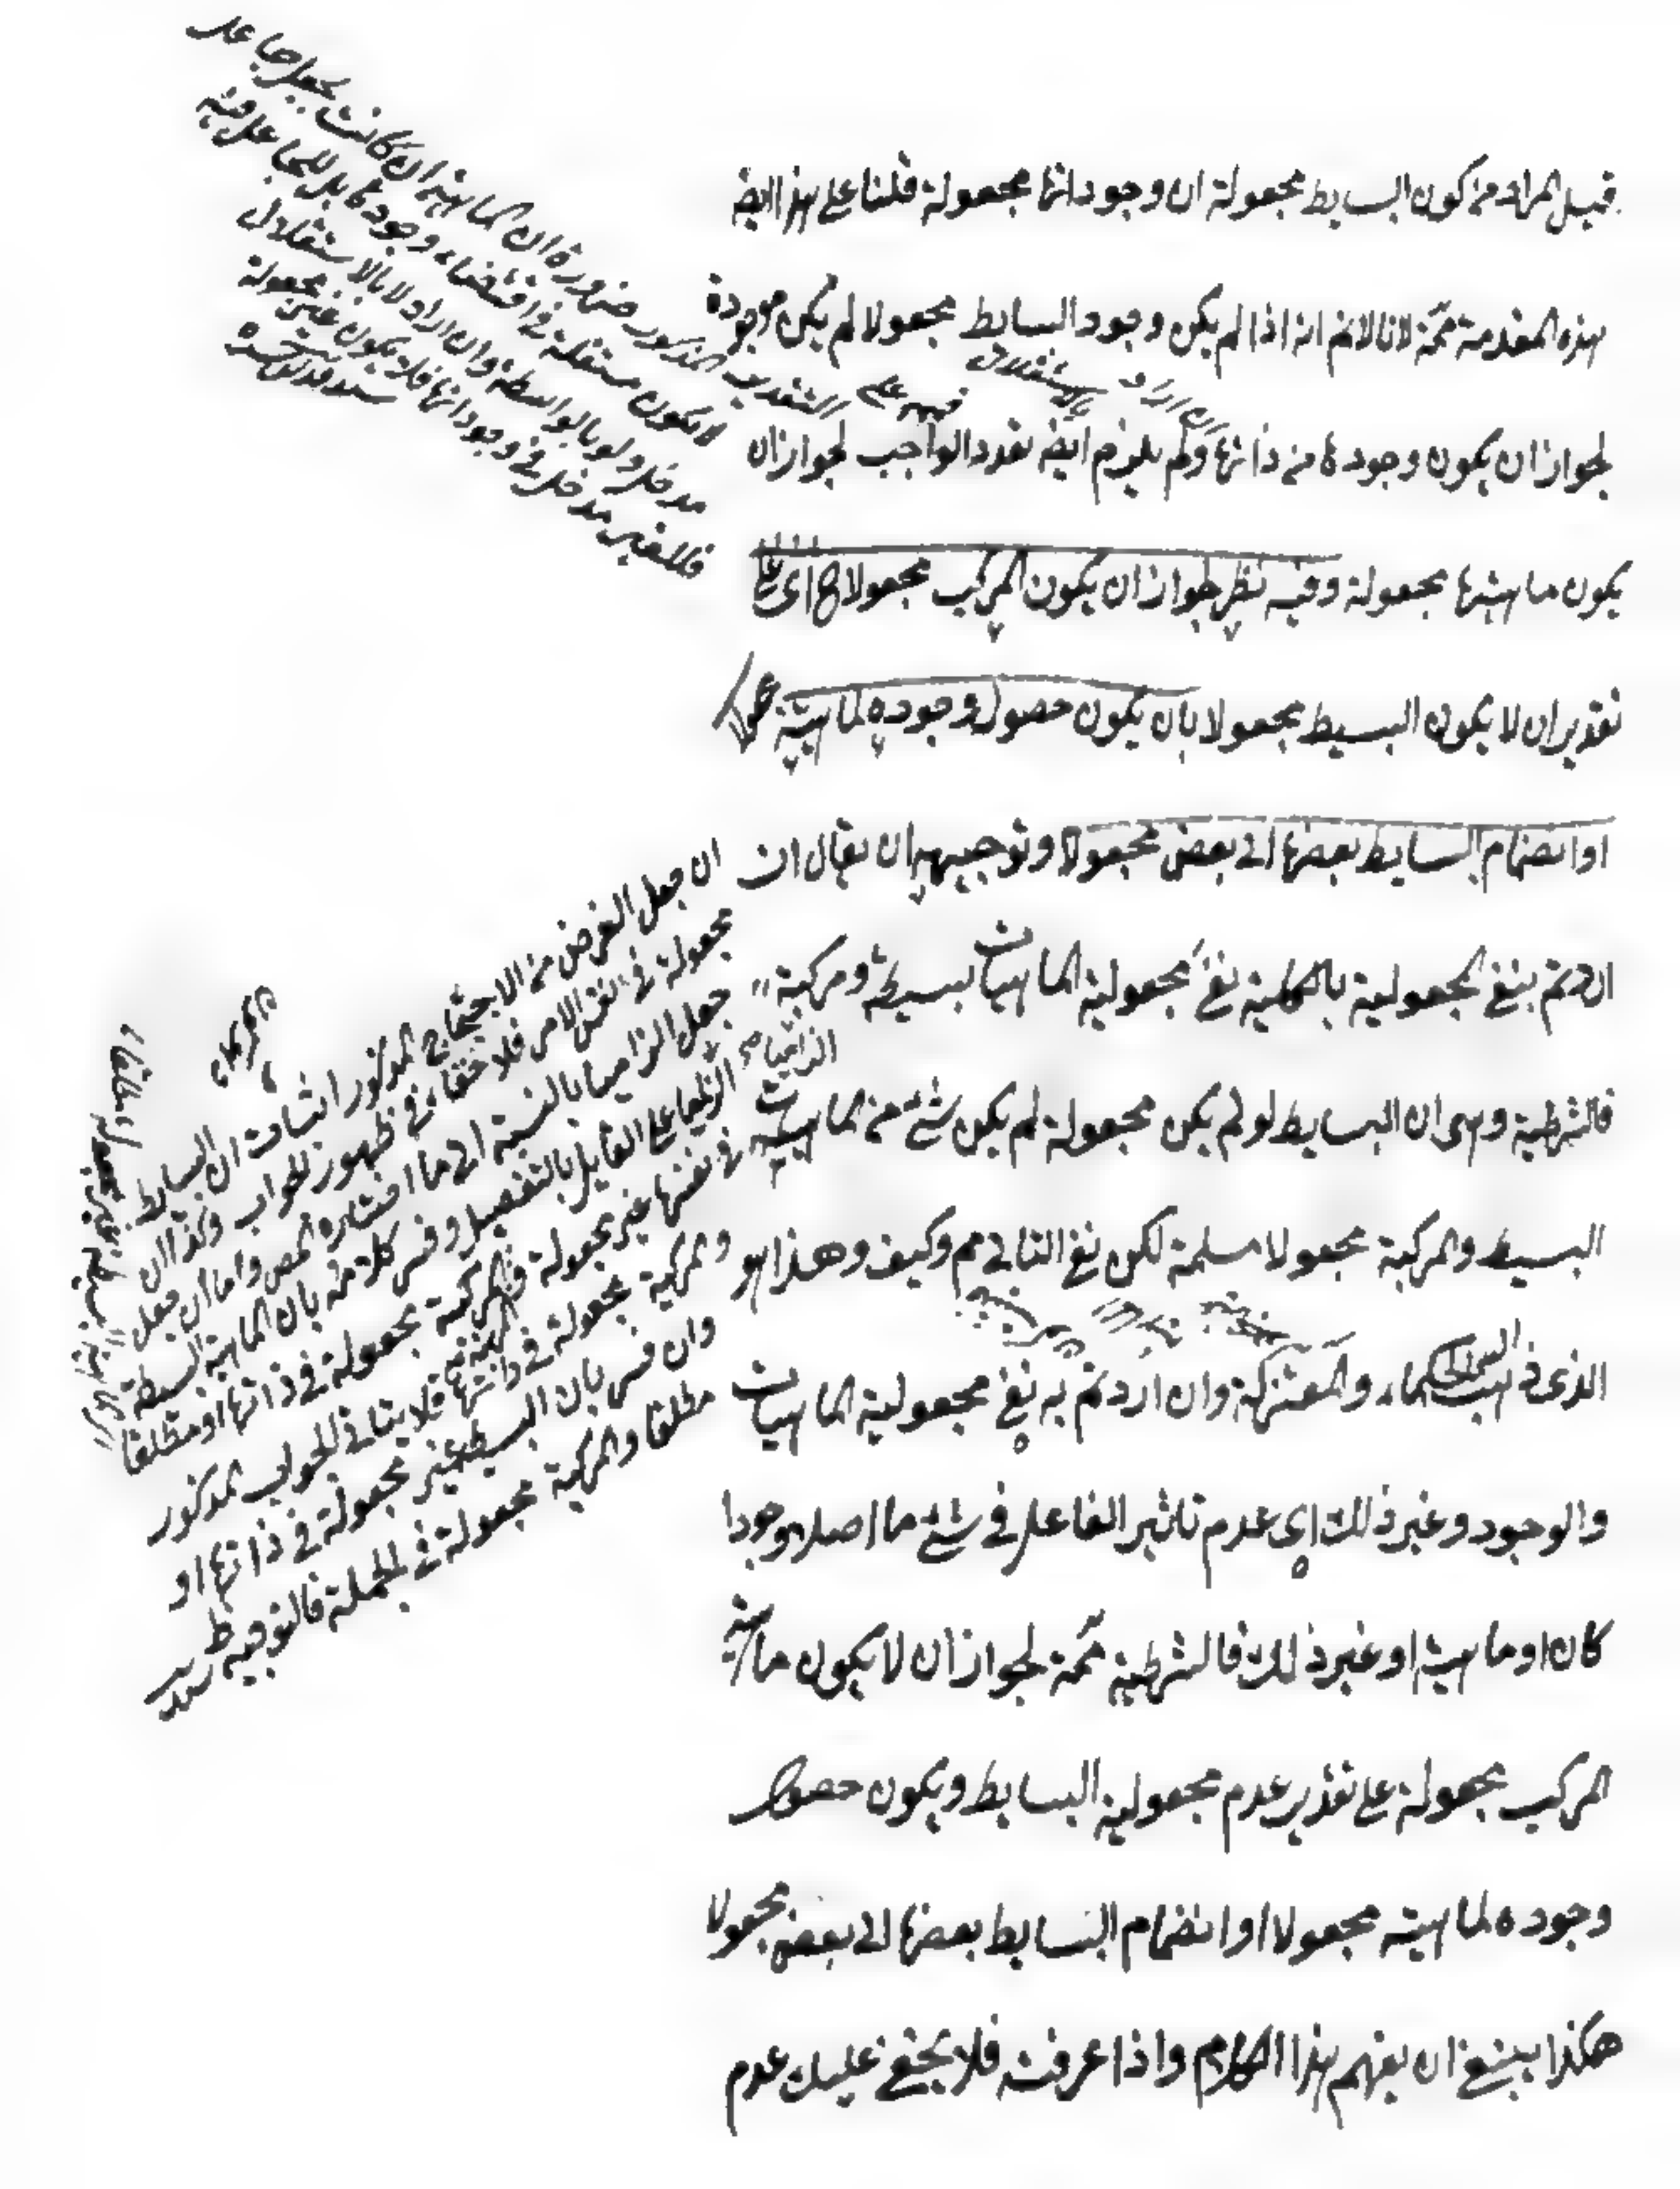 قيل المراد من كون البسايط مجعولة ان وجوداتها مجعولة قلنا على هذا ايضا
هذه المقدمة ممة لانا لانم انه اذا لم يكن وجود البسايط مجعولا لم يكن موجودة
لجواز ان يكون وجودها من ذاتها ولم يلزم ايضا تعدد الواجب لجواز ان
يكون ماهيتها مجعولة وفيه نظر لجواز ان يكون المركب مجعولا ح اى على
تقدير ان لا يكون البسيط مجعولا بان يكون حصول وجوده لماهيته مجعولا
او انضمام البسايط بعضها الى بعض مجعولا وتوجيهه ان يقال ان
اردتم بنفى المجعولية بالكلية نفى مجعولية الماهيات بسيطة ومركبة
فالشرطية وهى ان البسايط لو لم يكن مجعولة لم يكن شئ من الماهيات
البسيط والمركبة مجعولا مسلمة لكن نفى التالى مم وكيف وهذا هو
الذى ذهب اليه الحكماء والمعتزلة وان اردتم به نفى مجعولية الماهيات
والوجود وغير ذلك اى عدم تاثير الفاعل فى شئ ما اصلا وجودا
كان او ماهية او غير ذلك فالشرطية ممة لجواز ان لا يكون ماهية
المركب مجعولة على تقدير عدم مجعولية البسايط ويكون حصول
وجوده لماهيته مجعولا او انضمام البسايط بعضها الى بعض مجعولا
هكذا ينبغى ان يفهم هذا الكلام واذا عرفت فلا يخفى عليك عدم
التقدير المذكور ضرورة ان الماهية ان كانت بجعل جاعل
لا يكون مستقلة فى اقتضاء وجودها بل للجاعل فيه
مدخل ولو بالواسطة وان اراد لا بالاستقلال
فللغير مدخل فى وجوداتها فلا يكون غير مجعولة
ان جعل الغرض من الاحتجاج المذكور اثبات ان البسايط
مجعولة فى نفس الامر فلا خفاء فى ظهور الجواب وكذا ان
جعل الزاميا بالنسبة الى ما اختاره المص واما ان جعل
الزاميا على القايل بالتفصيل وفسر كلامه بان الماهية البسيطة
فى نفسها غير مجعولة والمركبة مجعولة فى ذاتها او مطلقا
والمركبة مجعولة فى ذاتها فلا يتأتى الجواب المذكور
وان فسر بان البسيط غير مجعولة فى ذاتها او
مطلقا والمركبة مجعولة فى الجملة فالتوجيه ظ